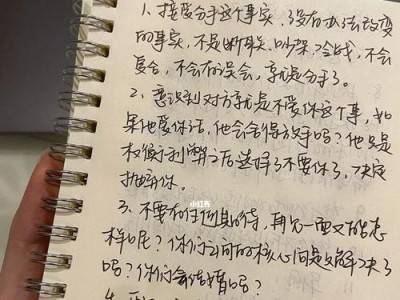 1、接受分手这个事实,没有办法改变
的事实,不是断联、吵架、冷战,不会
复合,不会有误会,就是分手了。
2、意识到对方就是不爱你这个事,如
果他爱你话,他会舍得放手吗?他只是
权衡利弊之后选择了不要你了,决定
抛弃你。
小红书
3、不要有任何期待,再见一面又能怎
样呢?你们之间的核心问题又解决了
吗?你们会结婚吗?